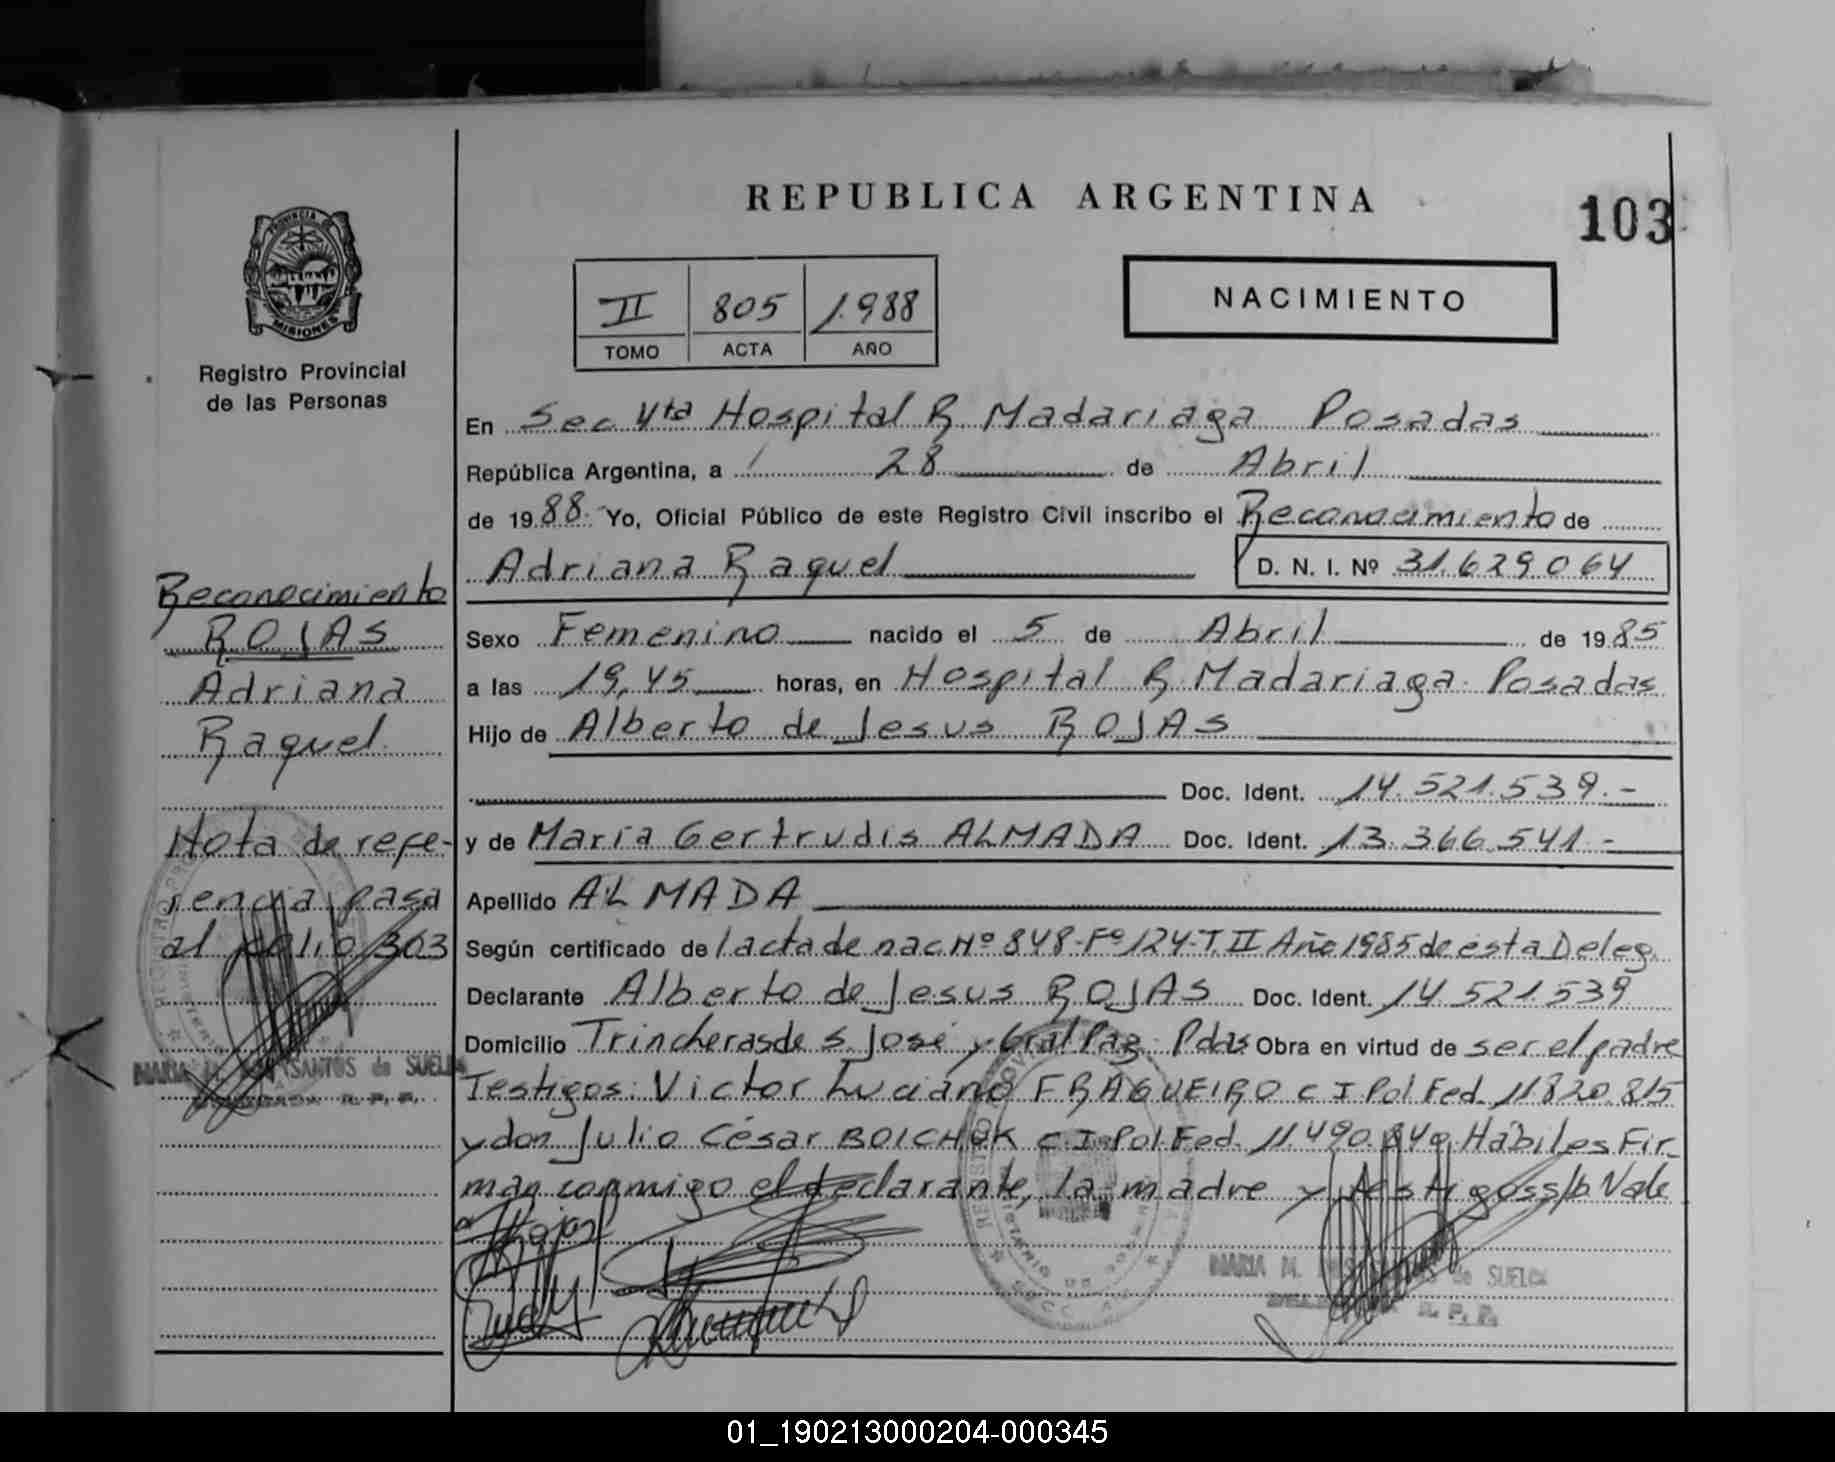 REPUBLICA ARGENTINA
103
II 805 1.988
TOMO ACTA AÑO
NACIMIENTO
PROVINCIA DE
MISIONES
Registro Provincial
de las Personas
En Sec 4ta Hospital R Madariaga Posadas
República Argentina, a 28 de Abril
de 1988. Yo, Oficial Público de este Registro Civil inscribo el Reconocimiento de
Adriana Raquel D. N. I. Nº 31.629.064
Sexo Femenino nacido el 5 de Abril de 1985
a las 19,45 horas, en Hospital R. Madariaga. Posadas
Hijo de Alberto de Jesus ROJAS
Doc. Ident. 14.521.539.-
y de Maria Gertrudis ALMADA Doc. Ident. 13.366.541.-
Apellido ALMADA
Según certificado de l acta de nac. Nº 848-Fº 124-T. II Año 1985 de esta Deleg.
Declarante Alberto de Jesus ROJAS Doc. Ident. 14.521.539
Domicilio Trincheras de S. José y Gral Paz. Pdas Obra en virtud de ser el padre
Testigos: Victor Luciano FRAGUEIRO C I Pol Fed. 11.820.815
y don Julio César BOICHUK C.I. Pol. Fed. 11.490.840. Hábiles Fir-
man conmigo el declarante, la madre y testigos s/b Vale
Rojas
MARIA M. SANTOS de SUELDO
R. P. P.
Reconocimiento
ROJAS
Adriana
Raquel
Nota de refe-
rencia pasa
al folio 303
MARIA M. SANTOS de SUELDO
DELEGADA R. P. P.
01_190213000204-000345